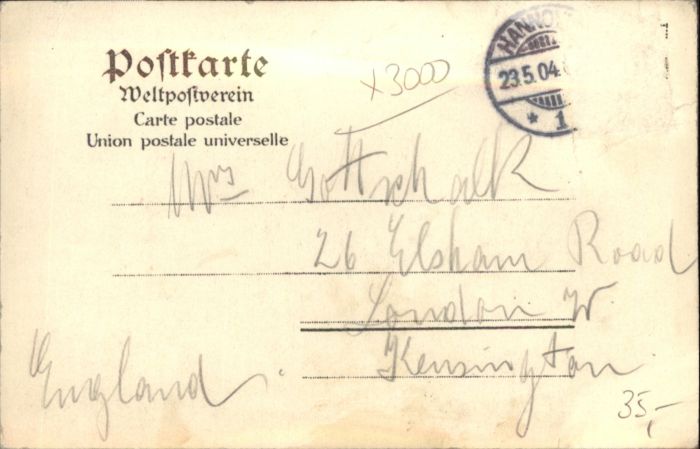 Postkarte
Weltpostverein
Carte postale
Union postale universelle
x3000
HANNO
23.5.04.
* 1
Mrs Gottschalk
26 Elsham Road
London W.
Kensington
England.
35,-